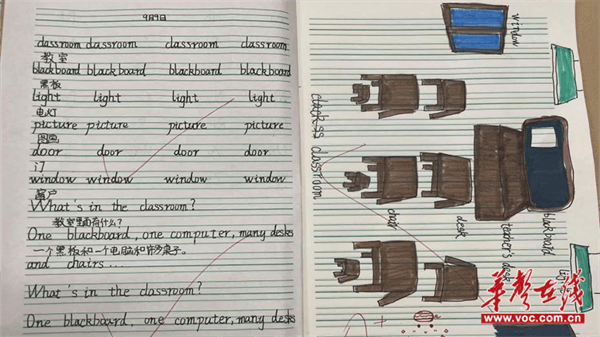 9月9日
classroom classroom classroom classroom
教室
blackboard blackboard blackboard blackboard
黑板
light light light light
电灯
picture picture picture picture
图画
door door door door
门
window window window window
窗户
What's in the classroom?
教室里面有什么?
One blackboard, one computer, many desks
一个黑板和一个电脑和许多桌子。
and chairs...
What's in the classroom?
One blackboard, one computer, many desks
window
classroom
chair
desk
teacher's desk
blackboard
华声在线
www.voc.com.cn